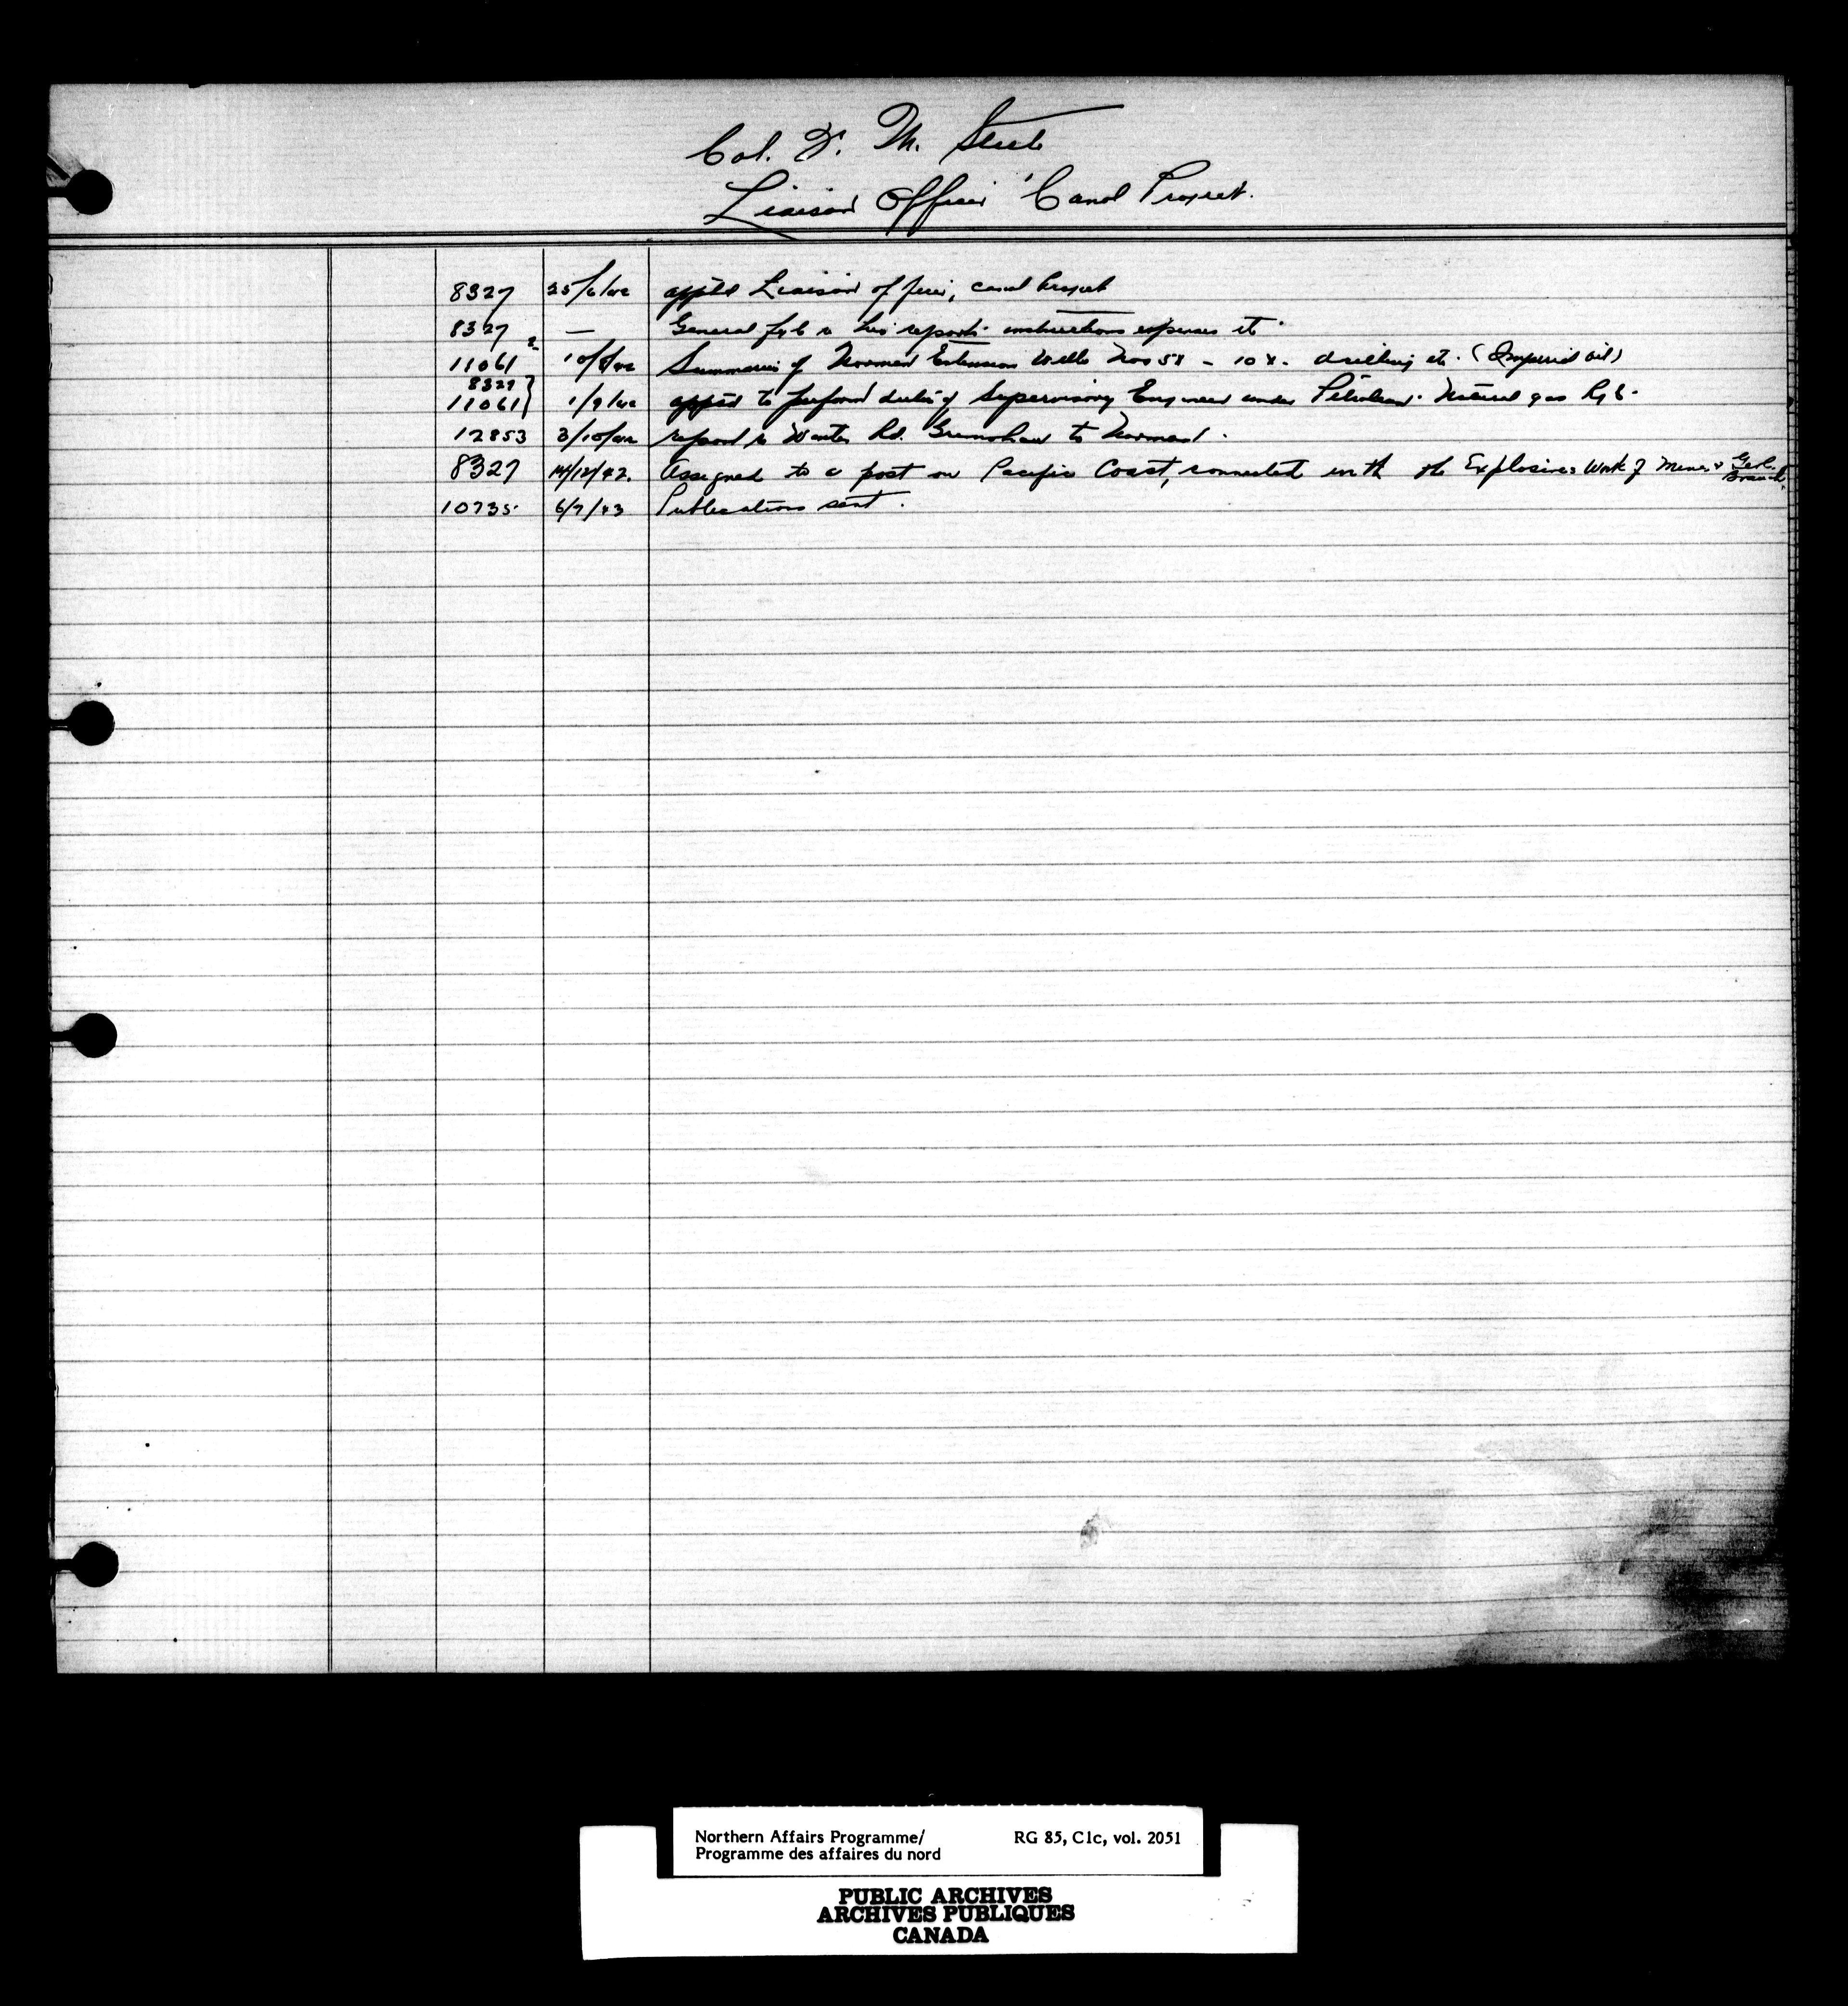 Col. F. M. Steel
Liaison Officer Canol Project.
8327 25/6/42 apptd Liaison officer, canol Project
8327 — General re his reports instructions expenses etc
11061 10/8/42 Summaries of Norman Extension Wells Nos 5X - 10X. drilling etc. (Imperial Oil)
8327
11061 } 1/9/42 apptd to perform duties of Supervisory Engineer under Petroleum & Natural gas Regs.
12853 3/10/42 report re Winter Rd. Grimshaw to Norman.
8327 14/12/42. Assigned to a post on Pacific Coast, connected with the Explosives Work of Mines & Geol.
Branch.
10735 6/7/43 Publications sent.
Northern Affairs Programme/ RG 85, C1c, vol. 2051
Programme des affaires du nord
PUBLIC ARCHIVES
ARCHIVES PUBLIQUES
CANADA